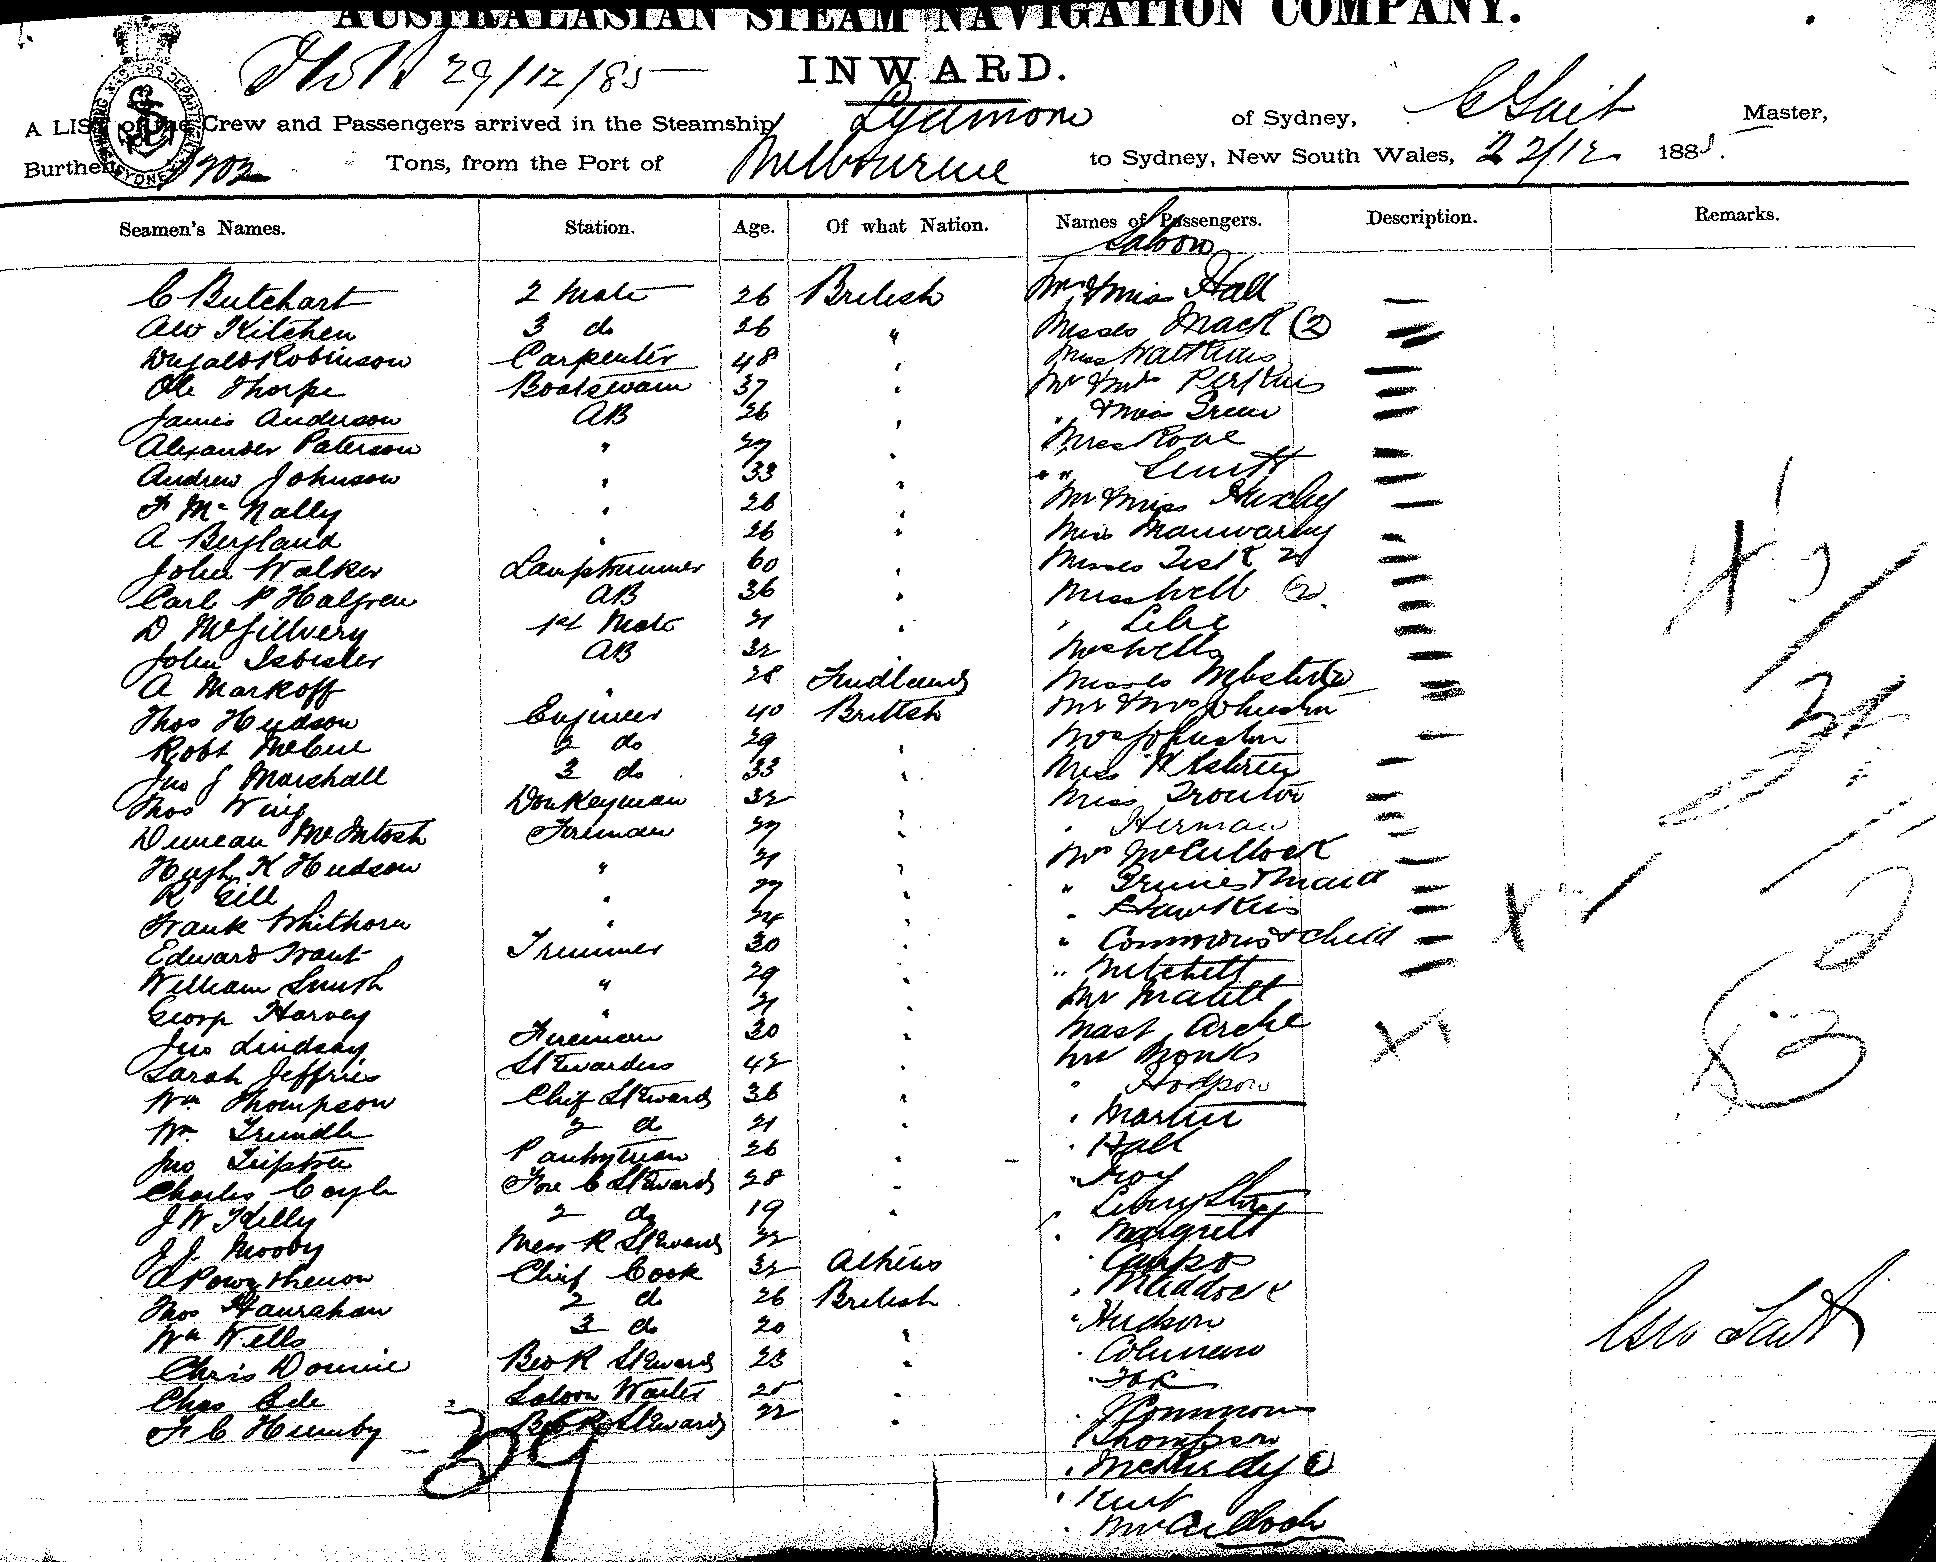 AUSTRALASIAN STEAM NAVIGATION COMPANY.
29/12/85
INWARD.
A LIST of the Crew and Passengers arrived in the Steamship of Sydney, Master,
Burthen 1202 Tons, from the Port of Melbourne to Sydney, New South Wales, 22/12 1885.
Seamen's Names. Station. Age. Of what Nation. Names of Passengers. Description. Remarks.
Saloon
C Butchart 2 Mate 26 British Mr & Miss Hall
AW Kitchen 3 do 26 " Misses Mack (2)
Dugald Robinson Carpenter 48 " Miss Watkins
Ole Thorpe Boatswain 37 " Mr & Mrs Perkins
James Anderson AB 26 " " & Miss Green
Alexander Paterson " 27 " Miss Rowe
Andrew Johnson " 33 " " " Smith
F McNally " 26 " Mr & Miss Huxley
A Bergland " 26 " Miss Manwaring
John Walker Lamptrimmer 60 " Misses 2
Carl P Halgren AB 36 " Miss Well (2)
D McGillvery 1st Mate 21 "
John Isbister AB 32 " Wells
A Markoff " 28 Misses Webster (2)
Thos Hudson Engineer 40 British Mr & Mrs Johnston
Robt McCue 2 do 29 " Johnston
Jno J Marshall 3 do 33 " Miss
Thos Wing Donkeyman 32 " Miss Troutor
Duncan McIntosh Fireman 27 " " Herman
Hugh K Hudson " 21 " Mrs McCullock
R Gill " 27 " " & Maid
Frank Whithorn " 24 " " Hawkins
Edward Trant Trimmer 30 " " Commons & child
William Smith " 29 " " Mitchell
George Harvey " 21 " Mr
Jno Lindsay Fireman 30 " Mast Arche
Sarah Jeffries Stewardess 42 " Mr Monks
Wm Thompson Chief Steward 36 " " Hodgson
Wm Trundle 2 do 21 " " Martin
Jno Pantryman 26 " " Hall
Charles Coyle Fore C Steward 28 " " Troy
J W Kelly 2 do 19 "
J J Moody Mess R Steward 22 " Margrett
Chief Cook 32 Athens " Campos
Thos Hanrahan 2 do 26 British " Maddock
Wm Wells 3 do 20 " " Hudson
Chris Downie Bedr Steward 23 " " Coleman
Chas Ede Saloon Waiter 25 " " Fox
F C Humby Bedr Steward 22 " " J Commons
39 " Thompson
" (1)
" Kent
" McCulloch